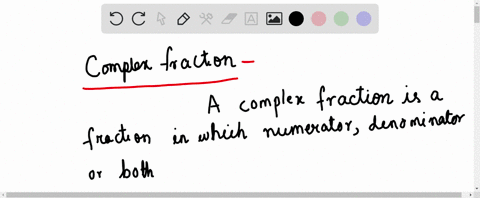 Complex fraction -
A complex fraction is a
fraction in which numerator, denominator
or both